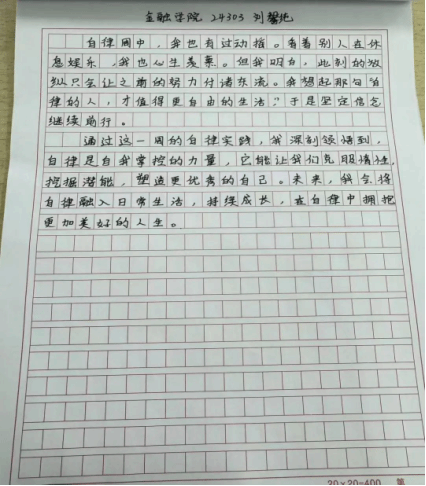 金融学院 24303 刘馨艳
自律周中，我也有过动摇。看着别人在休
息娱乐，我也心生羡慕。但我明白，此刻的放
纵只会让之前的努力付诸东流。我想起那句“自
律的人，才值得更自由的生活”于是坚定信念
继续前行。
通过这一周的自律实践，我深刻领悟到，
自律是自我掌控的力量，它能让我们克服惰性，
挖掘潜能，塑造更优秀的自己。未来，我会将
自律融入日常生活，持续成长，在自律中拥抱
更加美好的人生。
20×20=400 第